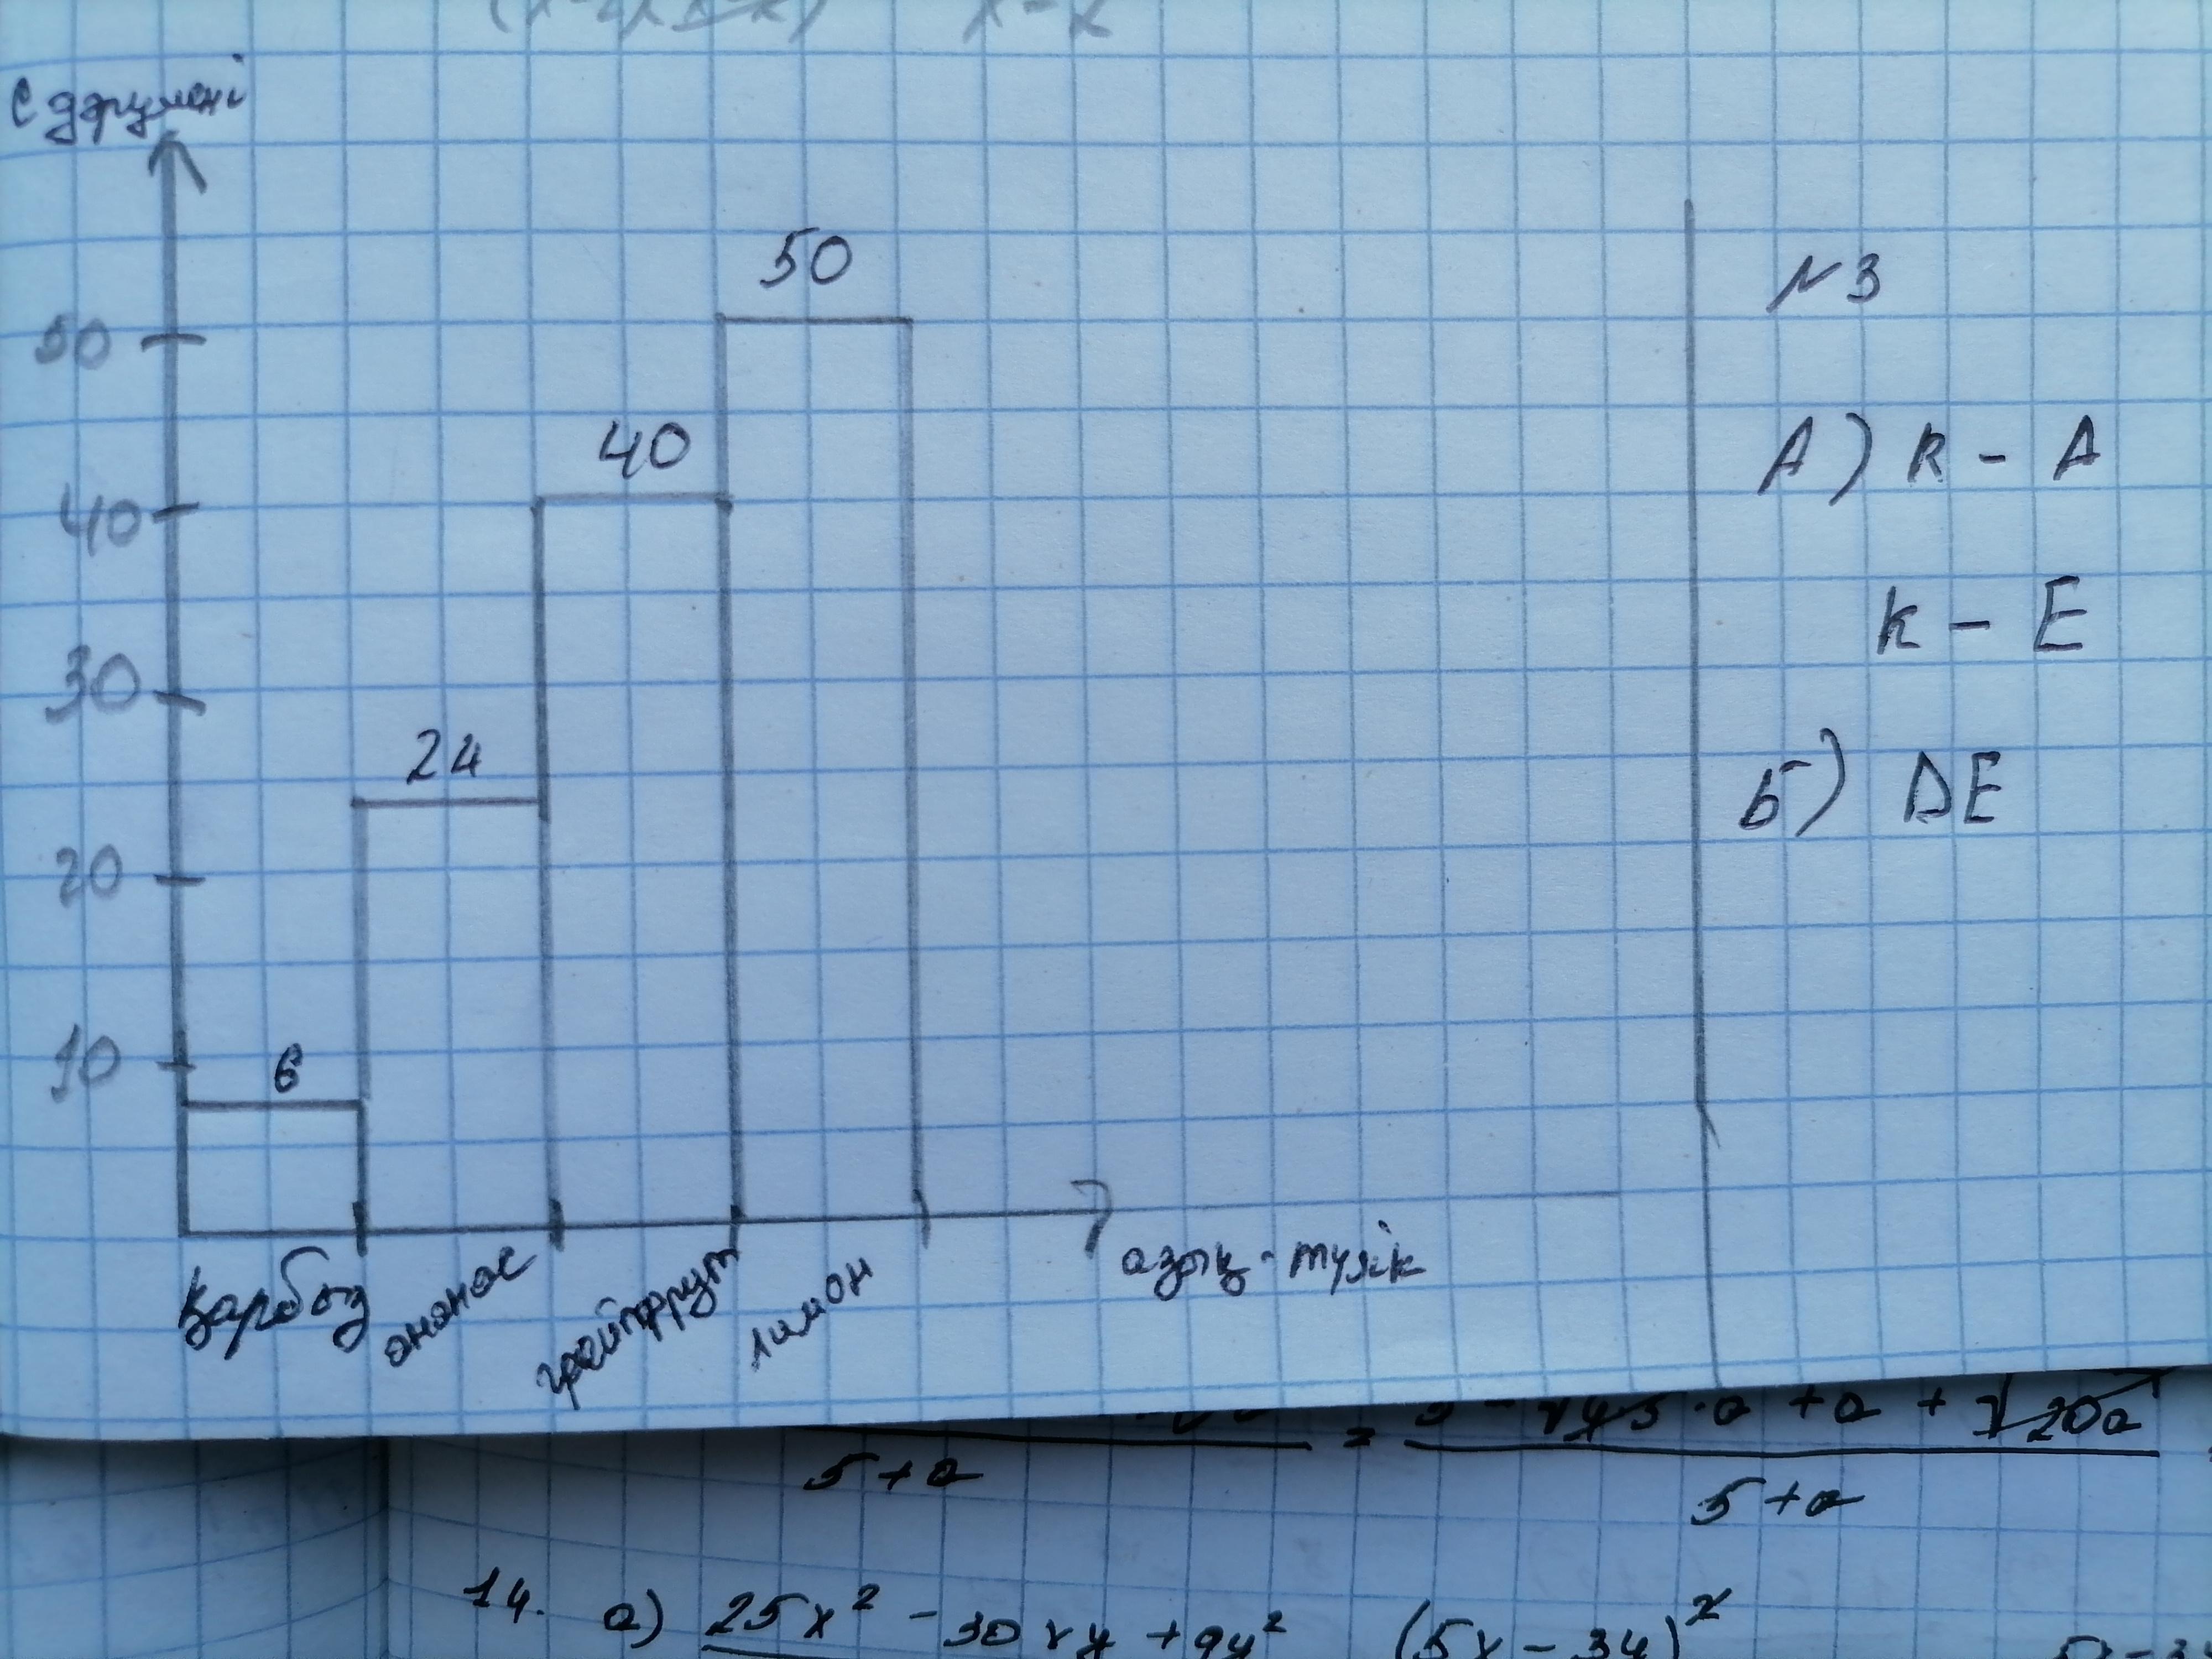 С дәрумені
50
50
40
40
30
24
20
10
6
Қарбыз
ананас
грейпфрут
лимон
азық-түлік
№3
А) К - А
К - Е
Б) DE
5+a
=
+a + √20a
5+a
14. a) 25x² - 30xy + 9y² (5x - 3y)²